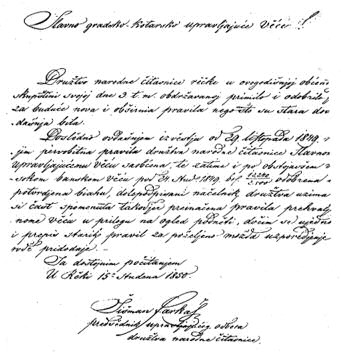 Slavno gradsko-kotarsko upravljajuće Věće!
Družtvo narodne čitaonice rěčke u ovogodišnjoj obćoj
skupštini svojoj dne 3. t. m. obdržavanoj primilo i odobrilo
za buduće nova i obširnia pravila negoli što su stara do-
dašnja bila.
Poslědno ovdašnjem izvěstju od 29. listopada 1849.
njim pèrvobitna pravila družtva narodne čitaonice Slavnom
Upravljajućemu Věću saobćena, te zatim i po obstojavšem
banskom věću pod 30. Stud. 1849. broj odobrena
potvèrdjena biahu, dolepodpisani načelnik družtva uzima
si čast spomenuta takodjer preinačena pravila prehvalj-
nome Věću u prilogu na ogled podněti, dočim se ujedno
i prepis starih pravilah za poželjeno možda uzporedjenje
ovdě pridodaje.
Sa dostojnim počitanjem
U Rěki 15. Studena 1850.
Šišman Farkaš
predsědnik upravljajućeg odbora
družtva narodne čitaonice.